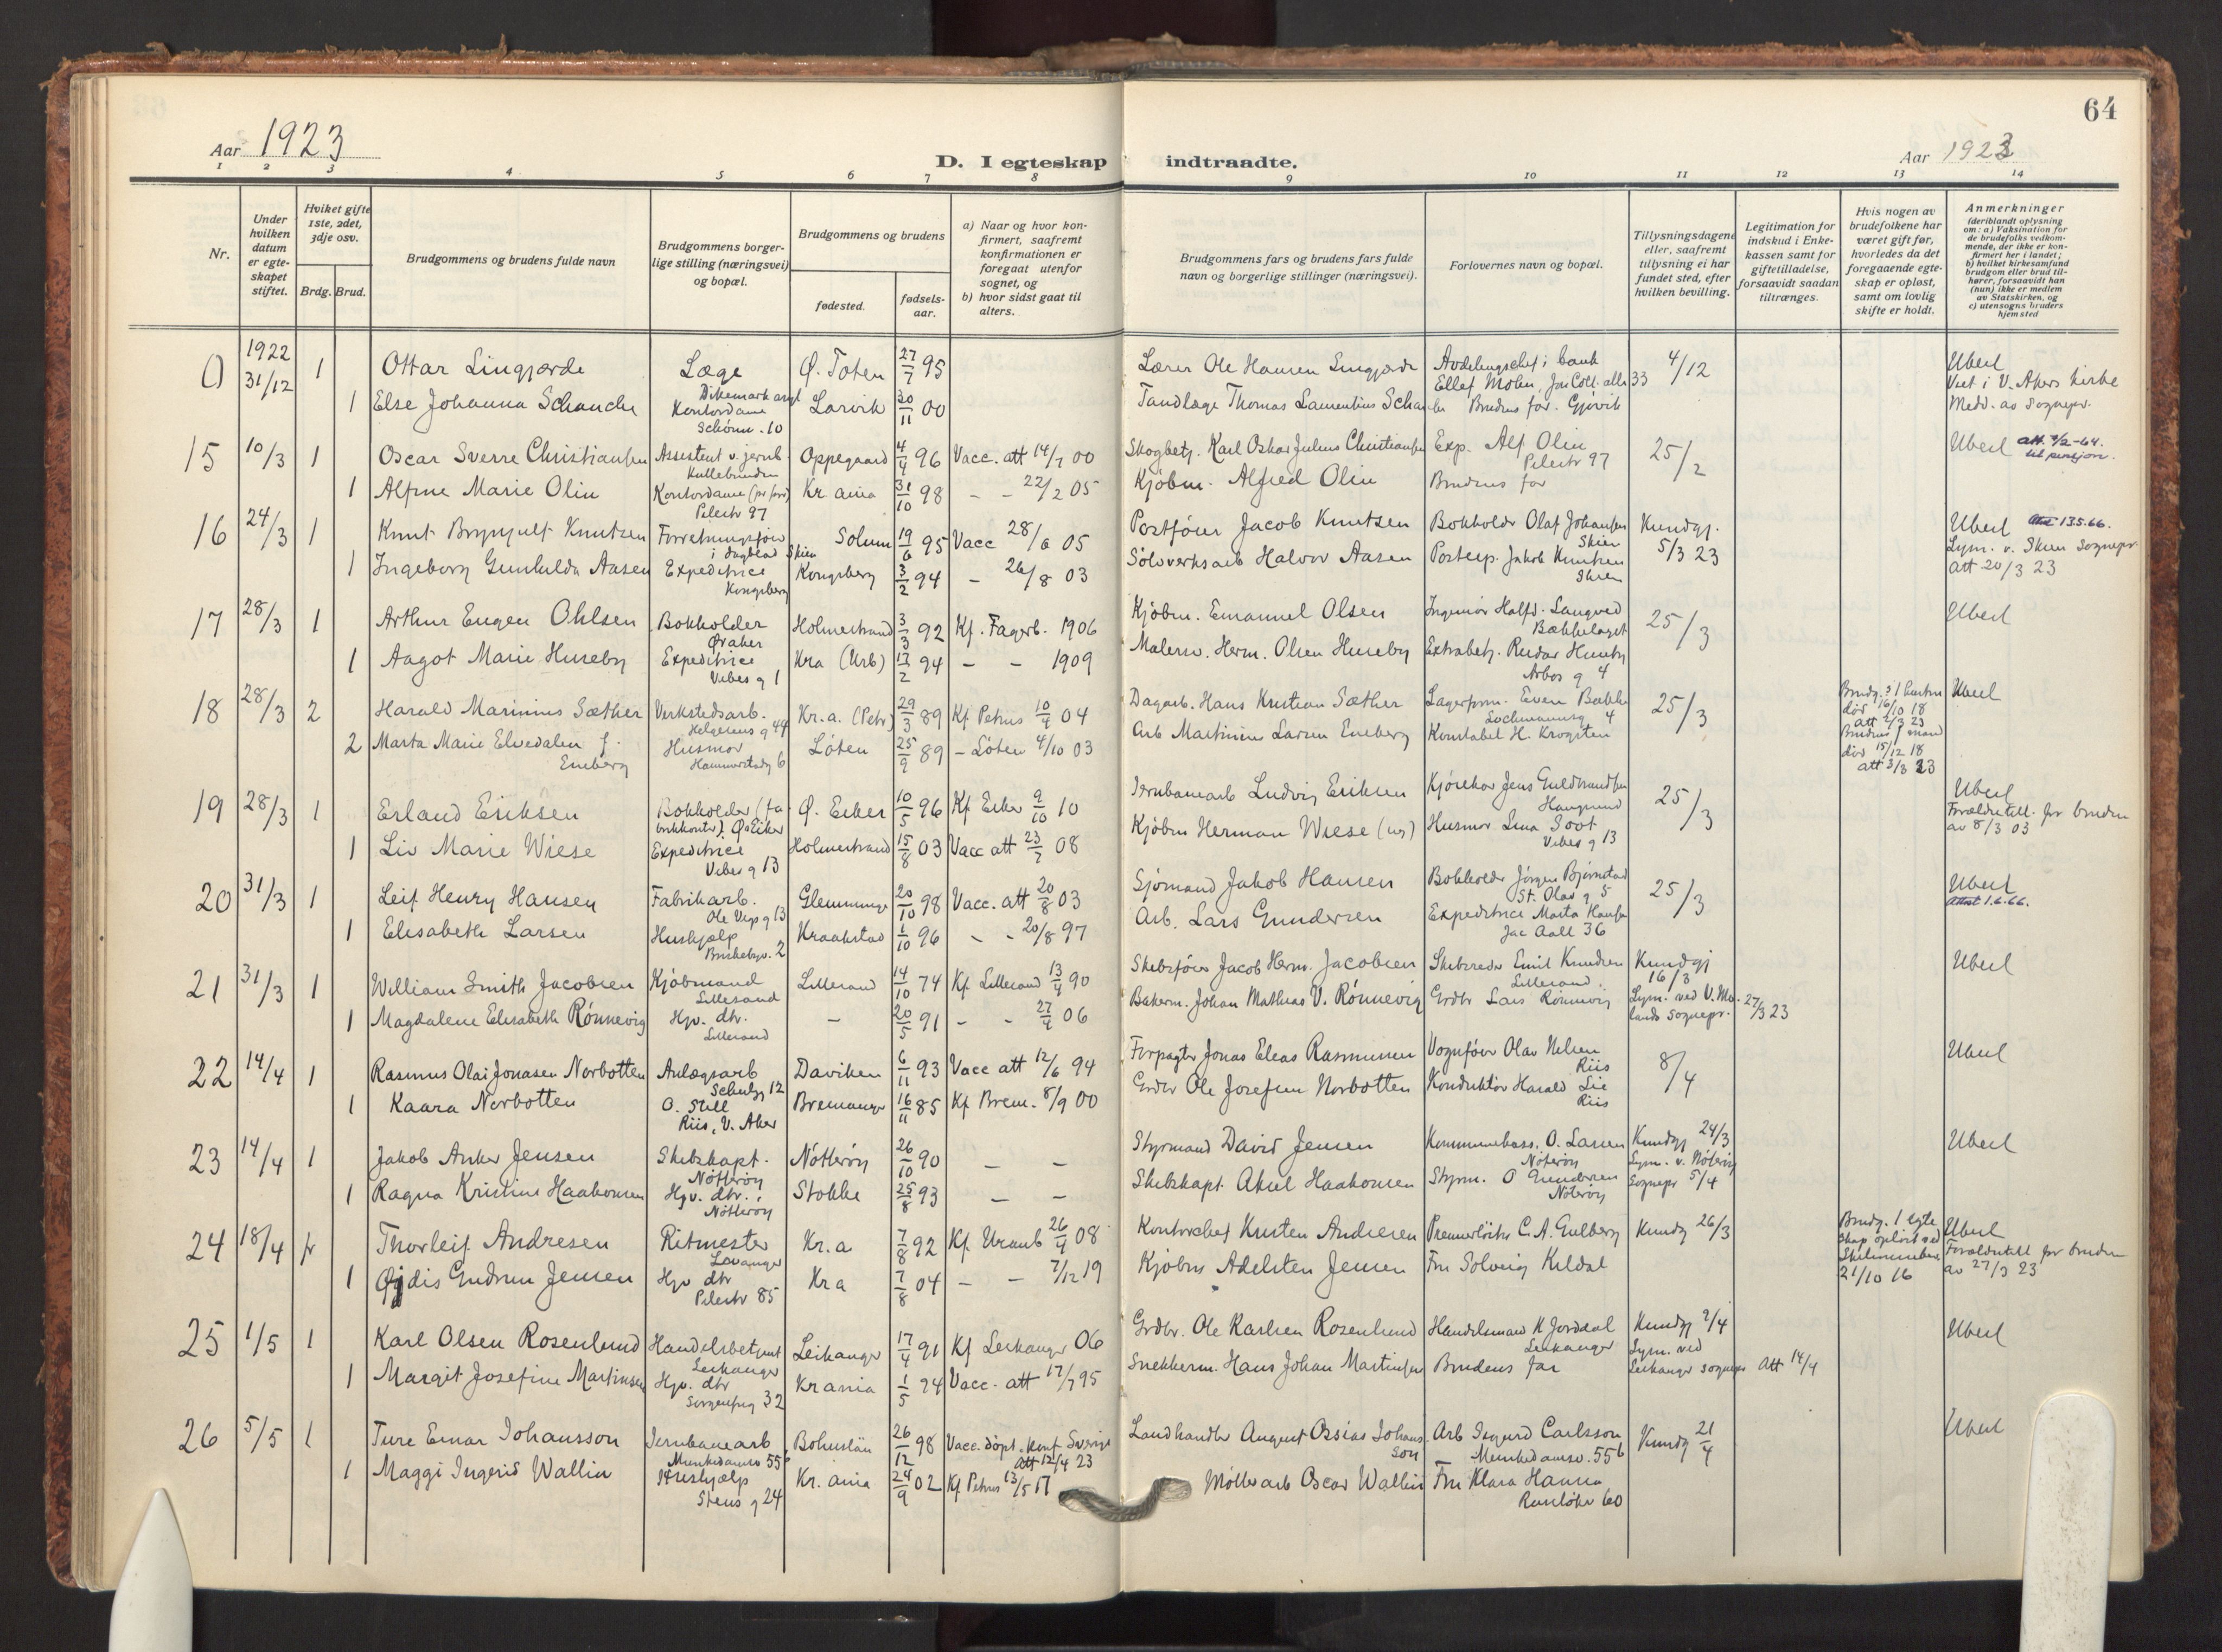 64
Aar 1923
D. I egteskap indtraadte.
Aar 1923
1 2 3 4 5 6 7 8 9 10 11 12 13 14
Nr.
Under hvilken datum er egteskapet stiftet.
Hviket gifte 1ste, 2det, 3dje osv.
Brdg. Brud.
Brudgommens og brudens fulde navn
Brudgommens borgerlige stilling (næringsvei) og bopæl.
Brudgommens og brudens
fødested.
fødselsaar.
a) Naar og hvor konfirmert, saafremt konfirmationen er foregaat utenfor sognet, og
b) hvor sidst gaat til alters.
Brudgommens fars og brudens fars fulde navn og borgerlige stillinger (næringsvei).
Forlovernes navn og bopæl.
Tillysningsdagene eller, saafremt tillysning ei har fundet sted, efter hvilken bevilling.
Legitimation for indskud i Enkekassen samt for giftetilladelse, forsaavidt saadan tiltrænges.
Hvis nogen av brudefolkene har været gift før, hvorledes da det foregaaende egteskap er opløst, samt om lovlig skifte er holdt.
Anmerkninger (deriblandt oplysning om: a) Vaksination for de brudefolks vedkommende, der ikke er konfirmert her i landet; b) hvilket kirkesamfund brudgom eller brud tilhører, forsaavidt han (hun) ikke er medlem av Statskirken, og c) utensogns bruders hjemsted
0 1922 31/12 1 Ottar Lingjærde Læge Dikemark asyl Ø. Toten 27/7 95 Lærer Ole Hansen Lingjærde Avdelingschef i bank Ellef Mohn, Jac Coll. alle 33 4/12 Uberl Viet i V. Akers kirke Medd. av sognepr.
1 Else Johanna Schancke Kontordame Schønn. 10 Larvik 20/11 00 Tandlæge Thomas Laurentius Schancke Brudens far. Gjøvik
15 10/3 1 Oscar Sverre Christiansen Assistent v. jernb. Kullebunden Oppegaard 4/4 96 Vacc. att 14/7 00 Skogbetj. Karl Oskar Julius Christiansen Exp. Alf Olin Pilestr 97 25/2 Uberl att. 4/2-64. til pensjon.
1 Alfine Marie Olin Kontordame Pilestr 97 Kr ania 31/10 98 - - 22/2 05 Kjøbm. Alfred Olin Brudens far
16 24/3 1 Knut Brynjulf Knutsen Forretningsfører i dagblad Skien Solum 19/6 95 Vacc 28/6 05 Postfører Jacob Knutsen Bokholder Olaf Johansen Skien Kundgj. 5/3 23 Uberl Attest 13.5.66. Lysn. v. Skien sognepr. att 20/3 23
1 Ingeborg Gunhilda Aasen Expeditrice Kongsberg Kongsberg 3/2 94 - 26/8 03 Sølvverksarb Halvor Aasen Postexp. Jakob Knutsen Skien
17 28/3 1 Arthur Eugen Ohlsen Bokholder Øraker Holmestrand 3/3 92 Kf. Fagerb. 1906 Kjøbm. Emanuel Olsen Ingeniør Halfd. Langved Bækkelaget 25/3 Uberl
1 Aagot Marie Huseby Expeditrice Vibes g 1 Kra (Urb) 17/2 94 - - 1909 Malerm. Herm. Olsen Huseby Extrabetj. Reidar Huseby Arbos g 4
18 28/3 2 Harald Marinius Sæther Verkstedsarb. Helgesens g 44 Kr.a. (Petr) 29/3 89 Kf Petrus 10/4 04 Dagarb. Hans Kristian Sæther Lagerform. Even Bakke Lochmannsg 4 25/3 Brudg. s 1 hustru død 16/10 18 att 2/3 23 Uberl
2 Marta Marie Elvedalen f. Eneberg Husmor Hammerstadg 6 Løten 25/9 89 - Løten 4/10 03 Arb Martinius Larsen Eneberg Konstabel H. Krogsten Brudens 1 mand død 15/12 18 att 3/3 23
19 28/3 1 Erland Eriksen Bokholder (fabrikkontor). Ø. Eiker Ø. Eiker 10/5 96 Kf Eiker 9/10 10 Jernbanearb Ludvig Eriksen Kjørekar Jens Guldbrandsen Haugsund 25/3 Uberl Forældretill. for bruden av 8/3 03
1 Liv Marie Wiese Expeditrice Vibes g 13 Holmestrand 15/8 03 Vacc att 23/7 08 Kjøbm Herman Wiese Husmor Lina Soot Vibes g 13
20 31/3 1 Leif Henry Hansen Fabrikarb. Ole Vigs g 13 Glemminge 20/10 98 Vacc. att 20/8 03 Sjømand Jakob Hansen Bokholder Jørgen Bjørnstad St. Olav g 5 25/3 Uberl Attest 1.6.66.
1 Elisabeth Larsen Hushjælp Briskebyv. 2 Kraakstad 1/10 96 - - 20/8 97 Arb. Lars Gundersen Expeditrice Marta Hansen Jac Aall 36
21 31/3 1 William Smith Jacobsen Kjøbmand Lillesand Lillesand 14/10 74 Kf Lillesand 13/4 90 Skibsfører Jacob Herm. Jacobsen Skibsreder Emil Knudsen Lillesand. Kundgj 16/3 Uberl
1 Magdalene Elisabeth Rønnevig Hjv. dtr. Lillesand - 20/5 91 - - 27/4 06 Bakerm. Johan Mathias V. Rønnevig Grdbr Lars Rønnevig Lysn. ved V. Molands sognepr. 27/3 23
22 14/4 1 Rasmus Olai Jonasen Norbotten Anlægsarb Schultzg 12 Daviken 6/11 93 Vacc att 12/6 94 Forpagter Jonas Elias Rasmussen Vognfører Olav Nilsen Riis 8/4 Uberl
1 Kaara Norbotten O. Still Riis, V. Aker Bremanger 16/11 85 Kf Brem. 8/9 00 Grdbr Ole Josefsen Norbotten Konduktør Harald Lie Riis
23 14/4 1 Jakob Anker Jensen Skibskapt. Nøtterøy Nøtterøy 26/10 90 - - Styrmand David Jensen Kommunekass. O. Larsen Nøterøy Kundgj 24/3 Uberl
1 Ragna Kristine Haakonsen Hjv. dtr. Nøtterøy Stokke 25/8 93 - - Skibskapt. Aksel Haakonsen Styrm. O Gundersen Nøterøy Lysn. v. Nøterøy sognepr 5/4
24 18/4 fr Thorleif Andresen Ritmester Levanger Kr.a 7/8 92 Kf. Uranb 26/4 08 Kontorchef Kristen Andresen Premierløitn C. A. Gulberg Kundg 26/3 Brudg. 1 egteskap opløst ved Skilsmisse 21/10 16 Uberl Forældretill for bruden av 27/3 23
1 Øjdis Gudrun Jensen Hjv dtr Pilestr 85 Kr a 7/8 04 - - 7/12 19 Kjøbm Adelsten Jensen Fru Solveig Kildal
25 1/5 1 Karl Olsen Rosenlund Handelsbetjent Leikanger Leikanger 17/4 91 Kf Leikanger 06 Grdbr. Ole Karlsen Rosenlund Handelsmand K Jordal Leikanger Kundgj 2/4 Uberl
1 Margit Josefine Martinsen Hjv. dtr Sorgenfrig 32 Kr ania 1/5 94 Vacc. att 17/7 95 Snekkerm. Hans Johan Martinsen Brudens far Lysn. ved Leikanger sognepr Att 14/4
26 5/5 1 Ture Einar Johansson Jernbanearb Munkedamsv 55b Bohuslän 26/12 98 Vacc. døpt. konf Sverige att 12/4 23 Landhandler August Ossias Johansson Arb Sigurd Carlsson Munkedamsv. 55b Kundg 21/4 Uberl
1 Maggi Ingerid Wallin Hushjælp Stens g 24 Kr. ania 24/9 02 Kf Petrus 13/5 17 Møllerarb Oscar Wallin Fru Klara Hanna Roseløkv 60